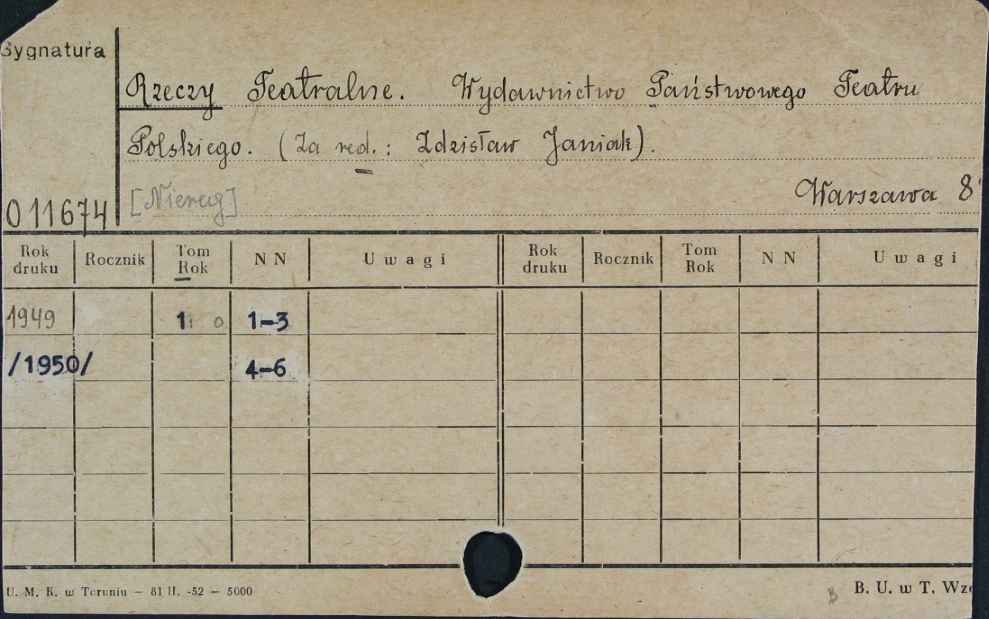 Sygnatura
Rzeczy Teatralne. Wydawnictwo Państwowego Teatru
Polskiego. (Za red.: Zdzisław Janiak).
011674 [Niereg] Warszawa 8°
Rok druku Rocznik Tom Rok NN Uwagi Rok druku Rocznik Tom Rok NN Uwagi
1949 1 1-3
/1950/ 4-6
U. M. K. w Toruniu — 81 II. -52 — 5000 B. U. w T.